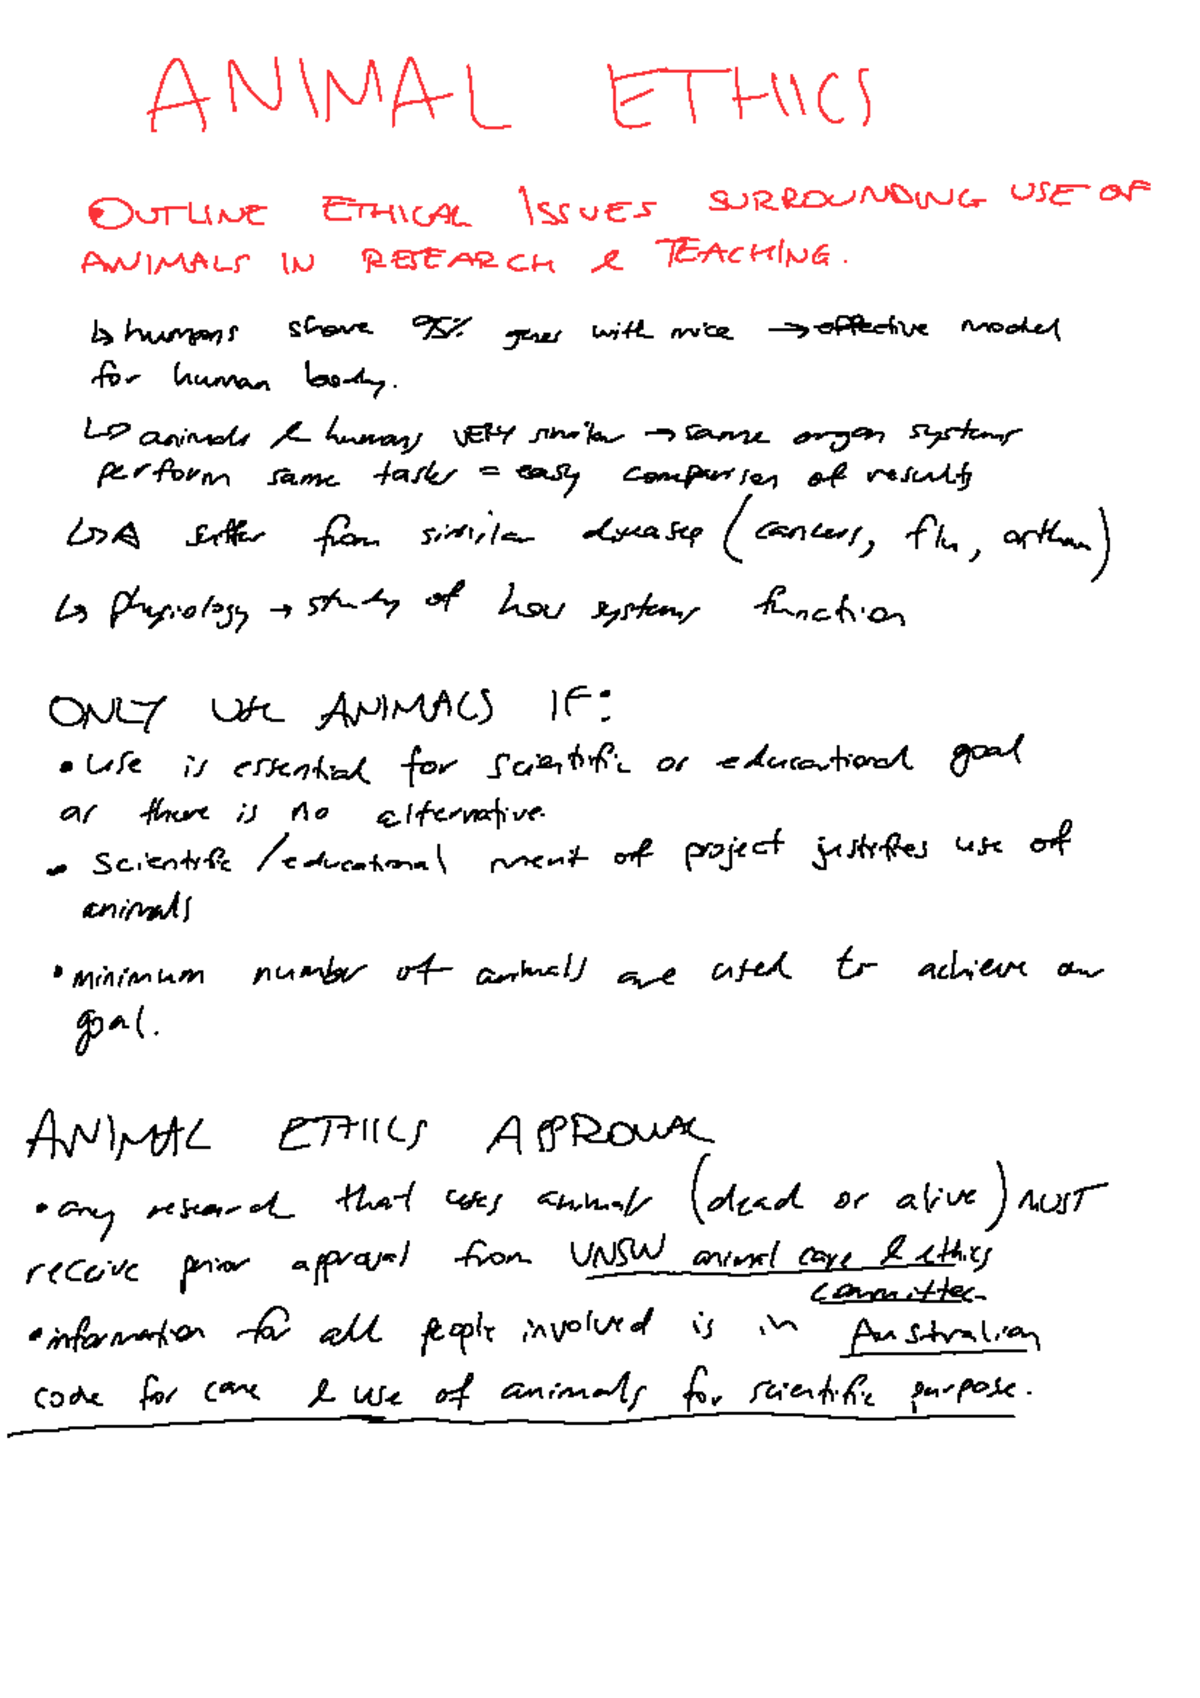 ANIMAL ETHICS
• OUTLINE ETHICAL ISSUES SURROUNDING USE OF
ANIMALS IN RESEARCH & TEACHING.
↳ humans share 95% genes with mice → effective model
for human body.
↳ animals & humans VERY similar → same organ systems
perform same tasks = easy comparison of results
↳ A suffer from similar diseases (cancers, flu, asthma)
↳ physiology → study of how systems function
ONLY USE ANIMALS IF:
• Use is essential for scientific or educational goal
or there is no alternative.
• Scientific/educational merit of project justifies use of
animals
• minimum number of animals are used to achieve our
goal.
ANIMAL ETHICS APPROVAL
• any research that uses animals (dead or alive) MUST
receive prior approval from UNSW animal care & ethics
committee
• information for all people involved is in Australian
code for care & use of animals for scientific purpose.